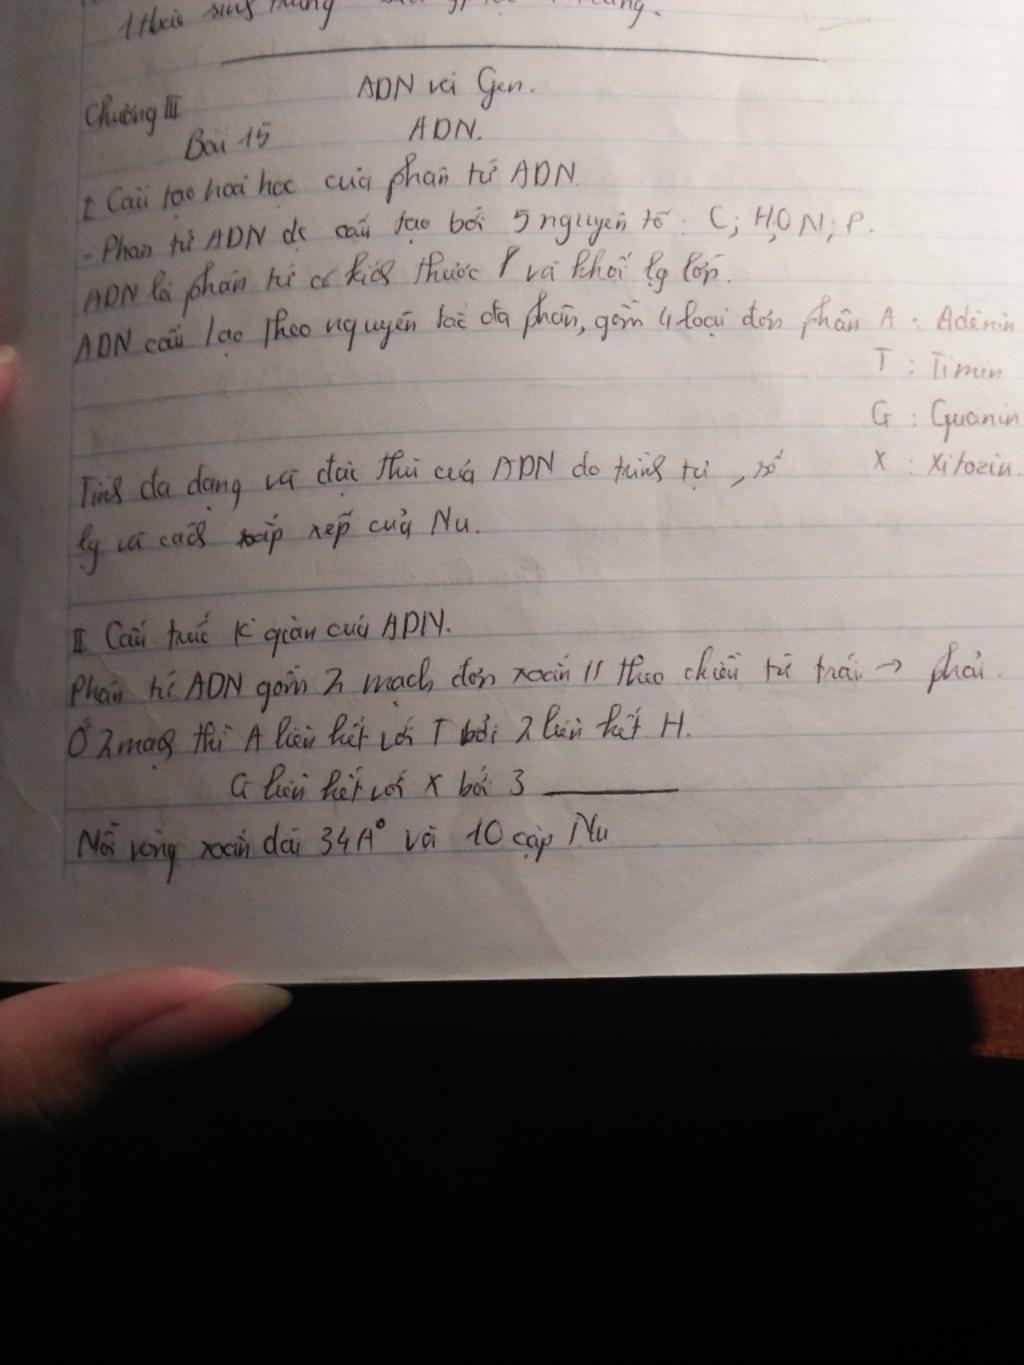 1 theo
ADN và Gen.
Chương III
Bài 15 ADN.
I Cấu tạo hoá học của phân tử ADN.
- Phân tử ADN đc cấu tạo bởi 5 nguyên tố: C; H, O N; P.
ADN là phân tử có thước và khối lg lớn.
ADN cấu tạo theo nguyên tắc đa phân, gồm 4 loại đơn phân A : Adênin
T : Timin
G : Guanin
X : Xitozin.
Tính đa dạng và đặc thù của ADN do trình tự, số
lg và cách xắp xếp của Nu.
II Cấu trúc k gian của ADN.
Phân tử ADN gồm 2 mạch đơn xoắn // theo chiều từ trái → phải.
Ở 2 mạch thì A liên kết với T bởi 2 liên kết H.
G liên kết với X bởi 3
Mỗi vòng xoắn dài 34A° và 10 cặp Nu